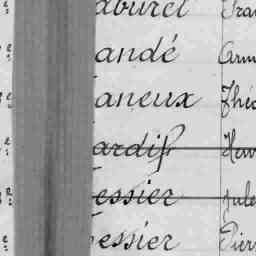 aburel Fra
andé Arm
aneux Théo
ardif Hen
essier Jule
essier Pier